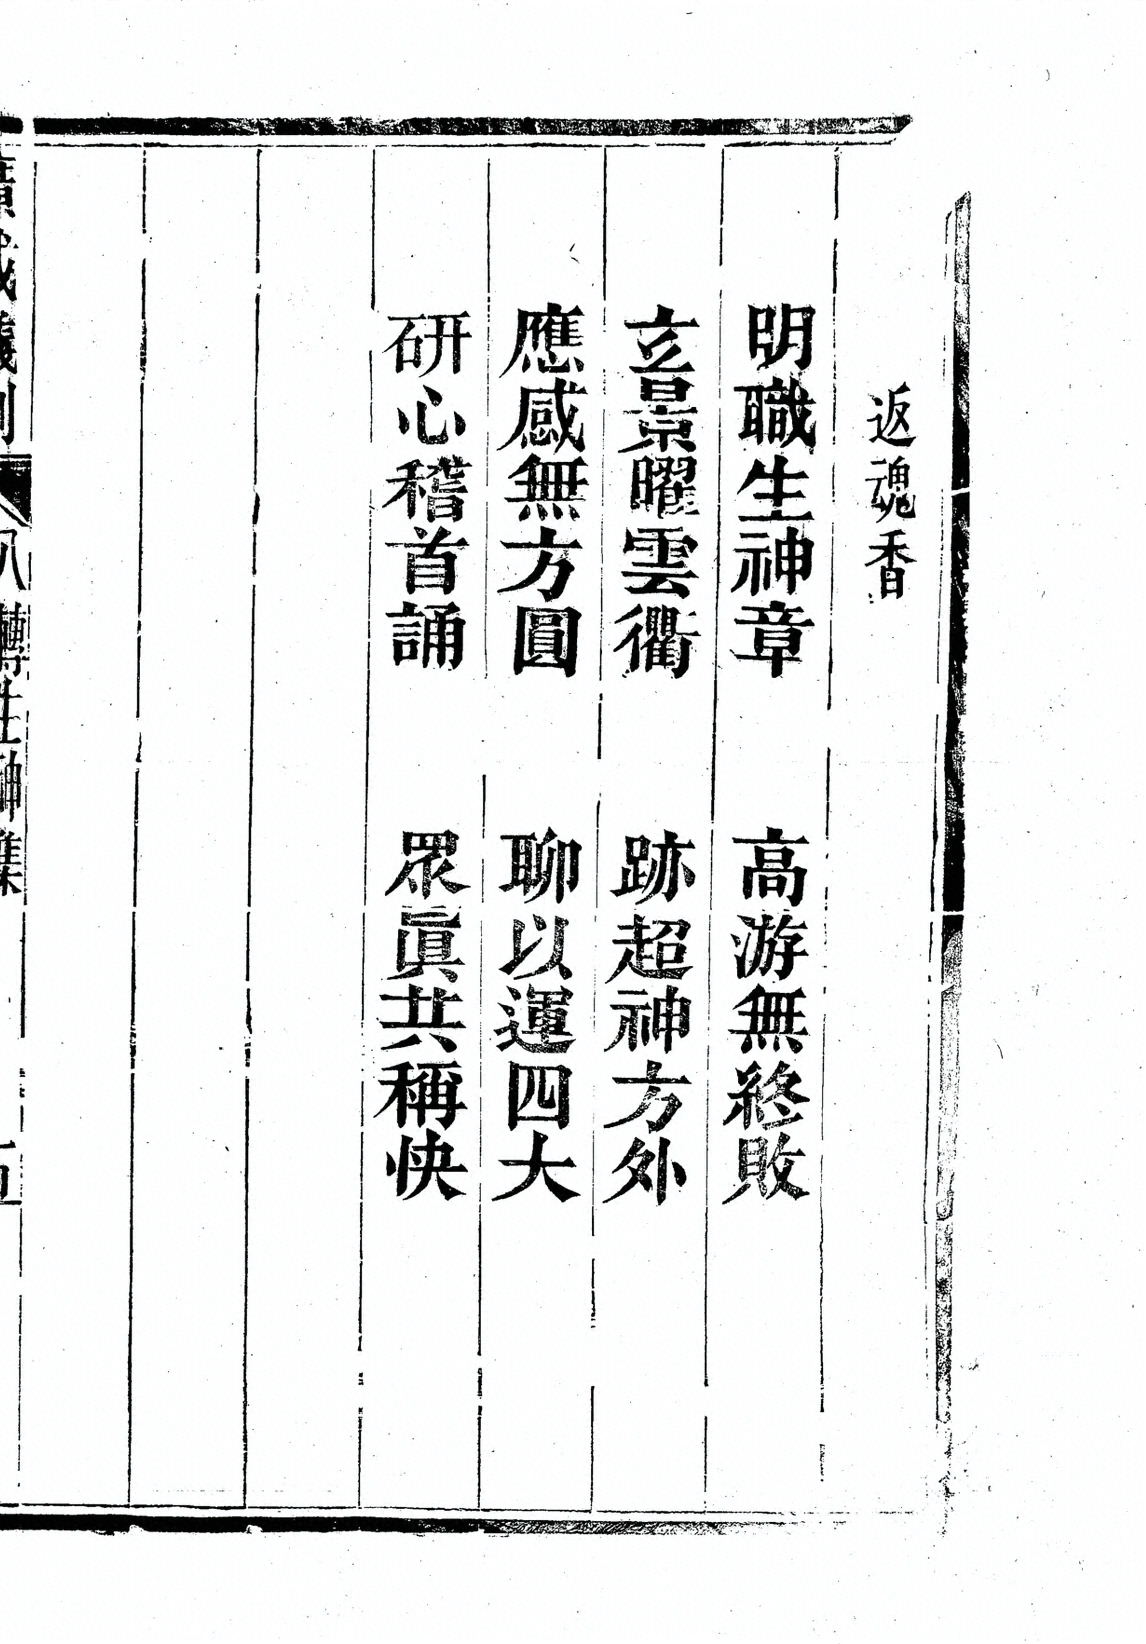 返魂香
明職生神章 高游無終敗
玄景曜雲衢 跡超神方外
應感無方圓 聊以運四大
研心稽首誦 眾眞共稱快
轉生神集